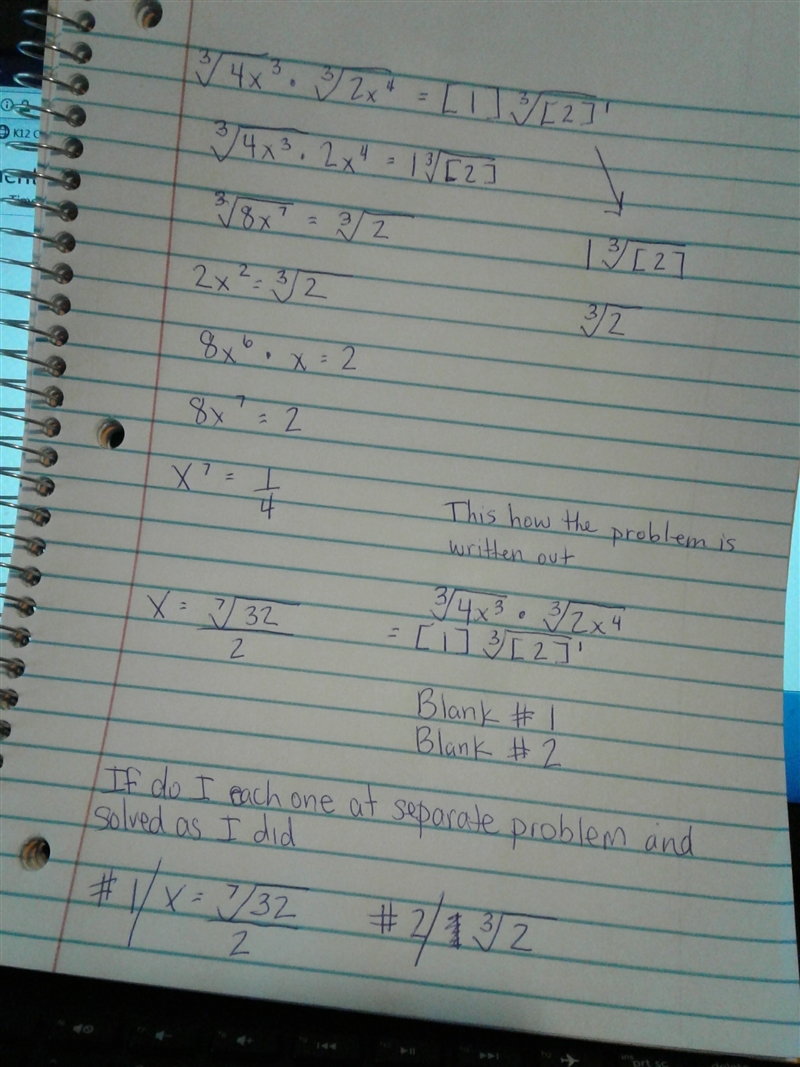 ∛4x³ · ∛2x⁴ = [1] ∛[2]'
∛4x³ · 2x⁴ = 1∛[2]
∛8x⁷ = ∛2
1∛[2]
2x² = ∛2
∛2
8x⁶ · x = 2
8x⁷ = 2
x⁷ = 1/4
This how the problem is
written out
x = ⁷√32 / 2
∛4x³ · ∛2x⁴
= [1] ∛[2]'
Blank # 1
Blank # 2
If do I each one at separate problem and
solved as I did
# 1/ x = ⁷√32 / 2
# 2/ ∛2
K12